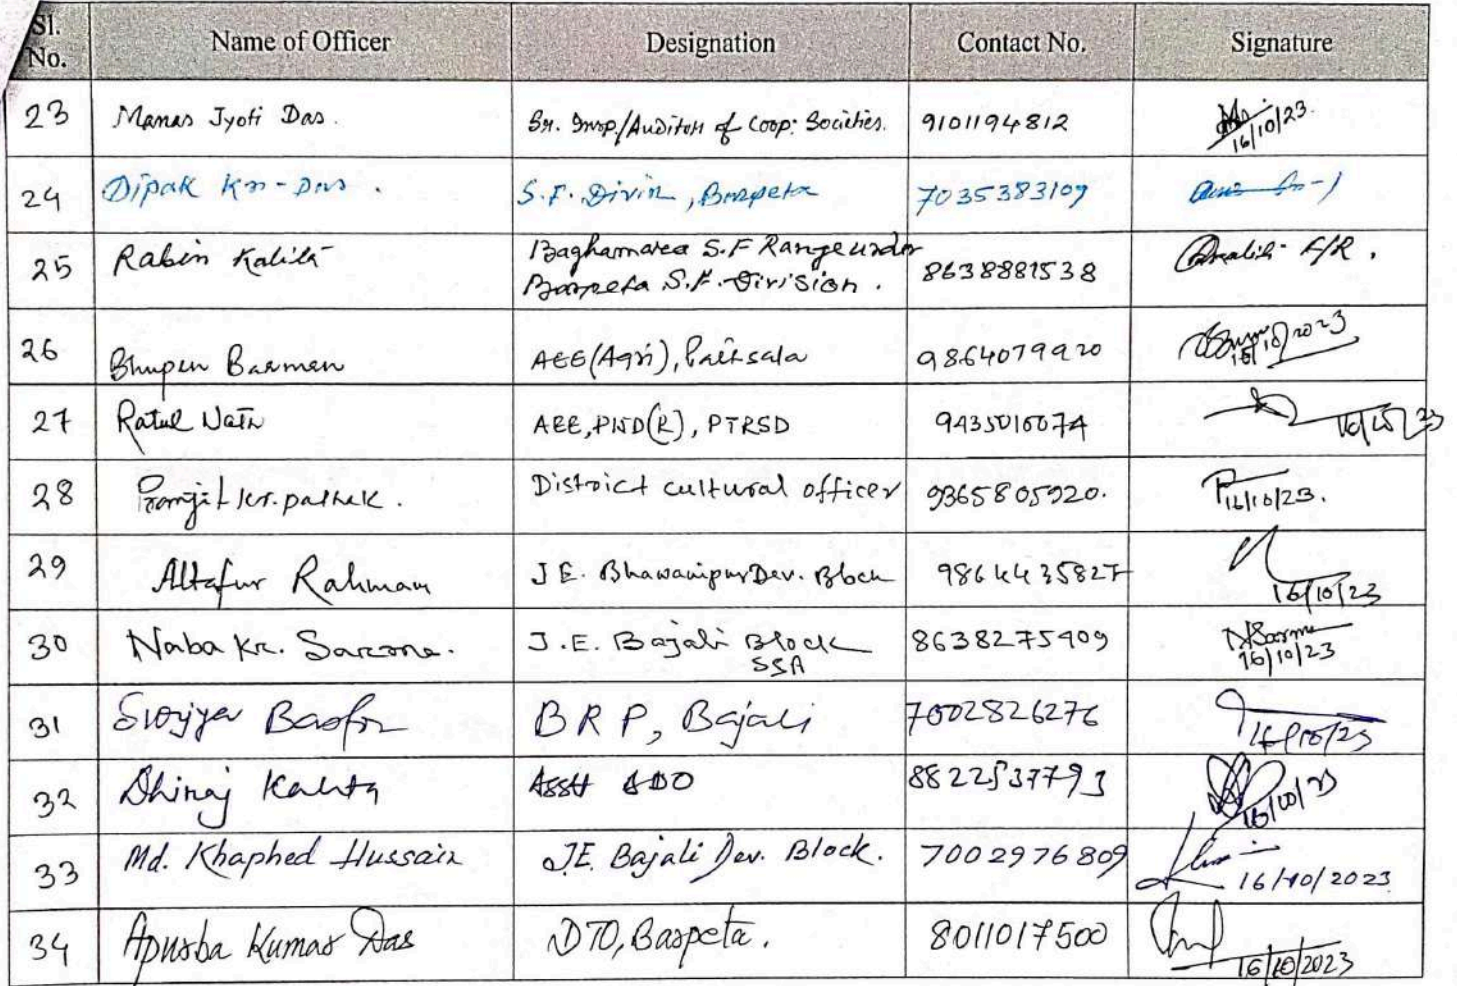 Sl. No. Name of Officer Designation Contact No. Signature
23 Manas Jyoti Das. Sr. Insp./Auditor of Coop: Societies. 9101194812 16/10/23.
24 Dipak Kr. Das. S.F. Divin, Barpeta 7035383109
25 Rabin Kalita Baghamara S.F Range under
Barpeta S.F. Division. 8638881538 F/R.
26 Bhupen Barman AEE(Agri), Pathsala 9864079920 16/10/2023
27 Ratul Nath AEE, PWD(R), PTRSD 9435010074 16/10/23
28 Pramjit Kr. pathak. District cultural officer 9365805920. 16/10/23.
29 Altafur Rahman J E. Bhawanipur Dev. Block 9864435827 16/10/23
30 Naba Kr. Sarma. J.E. Bajali Block
SSA 8638275409 NSarma
16/10/23
31 BRP, Bajali 7002826276 16/10/23
32 Dhiraj Kalita Asstt ADO 8822537793 16/10/23
33 Md. Khaphed Hussain J.E. Bajali Dev. Block. 7002976809 16/10/2023
34 Apurba Kumar Das DTO, Barpeta. 8011017500 16/10/2023